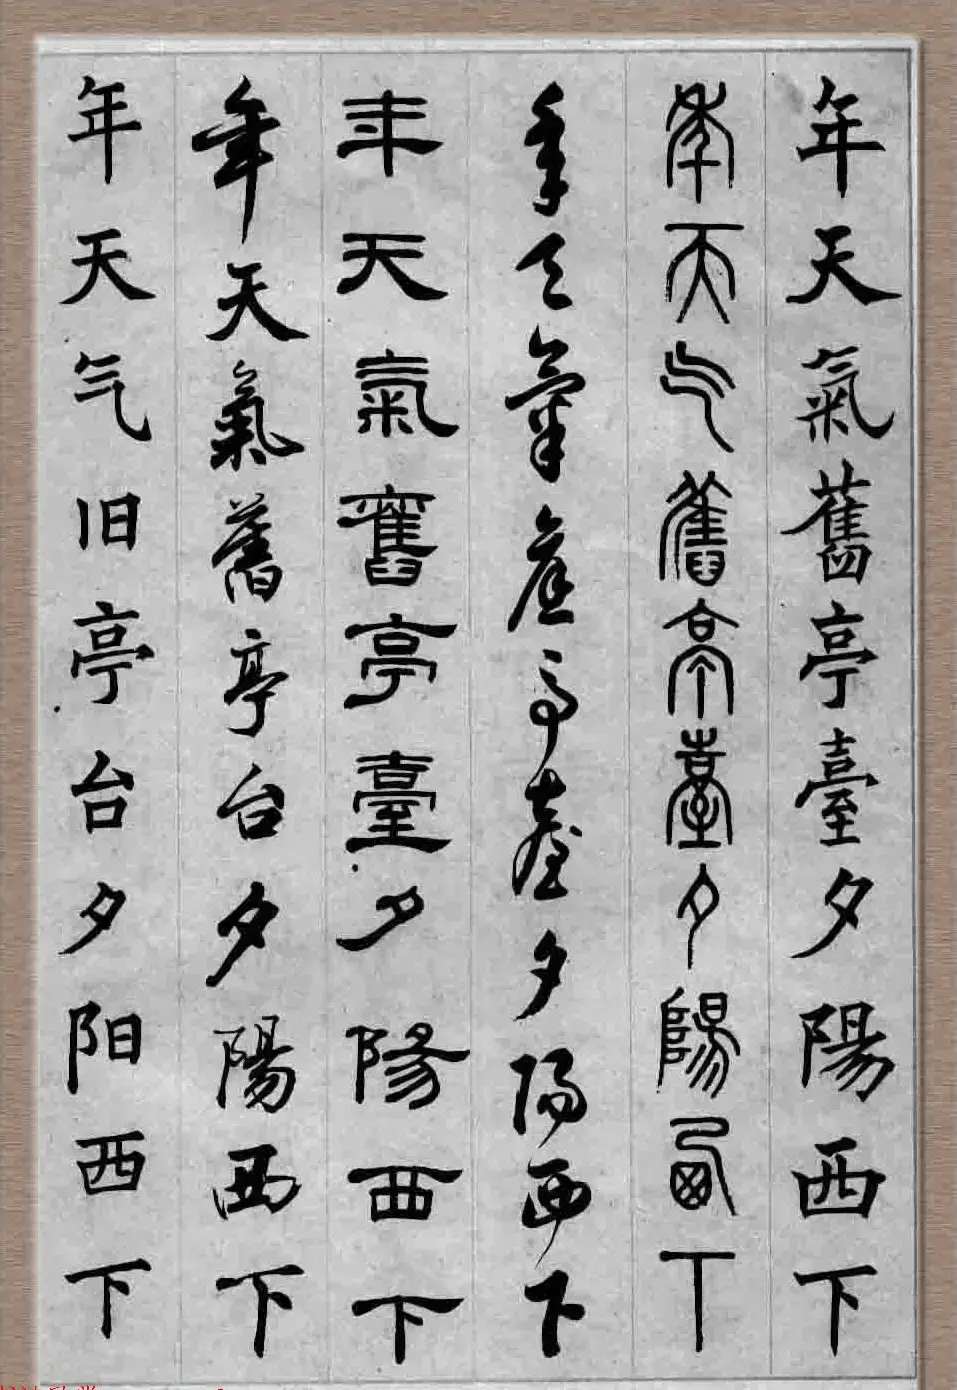 年天氣舊亭臺夕陽西下
年天气舊亭臺夕陽西下
年天氣舊亭臺夕陽西下
年天氣舊亭臺夕陽西下
年天氣舊亭台夕陽西下
年天气旧亭台夕阳西下